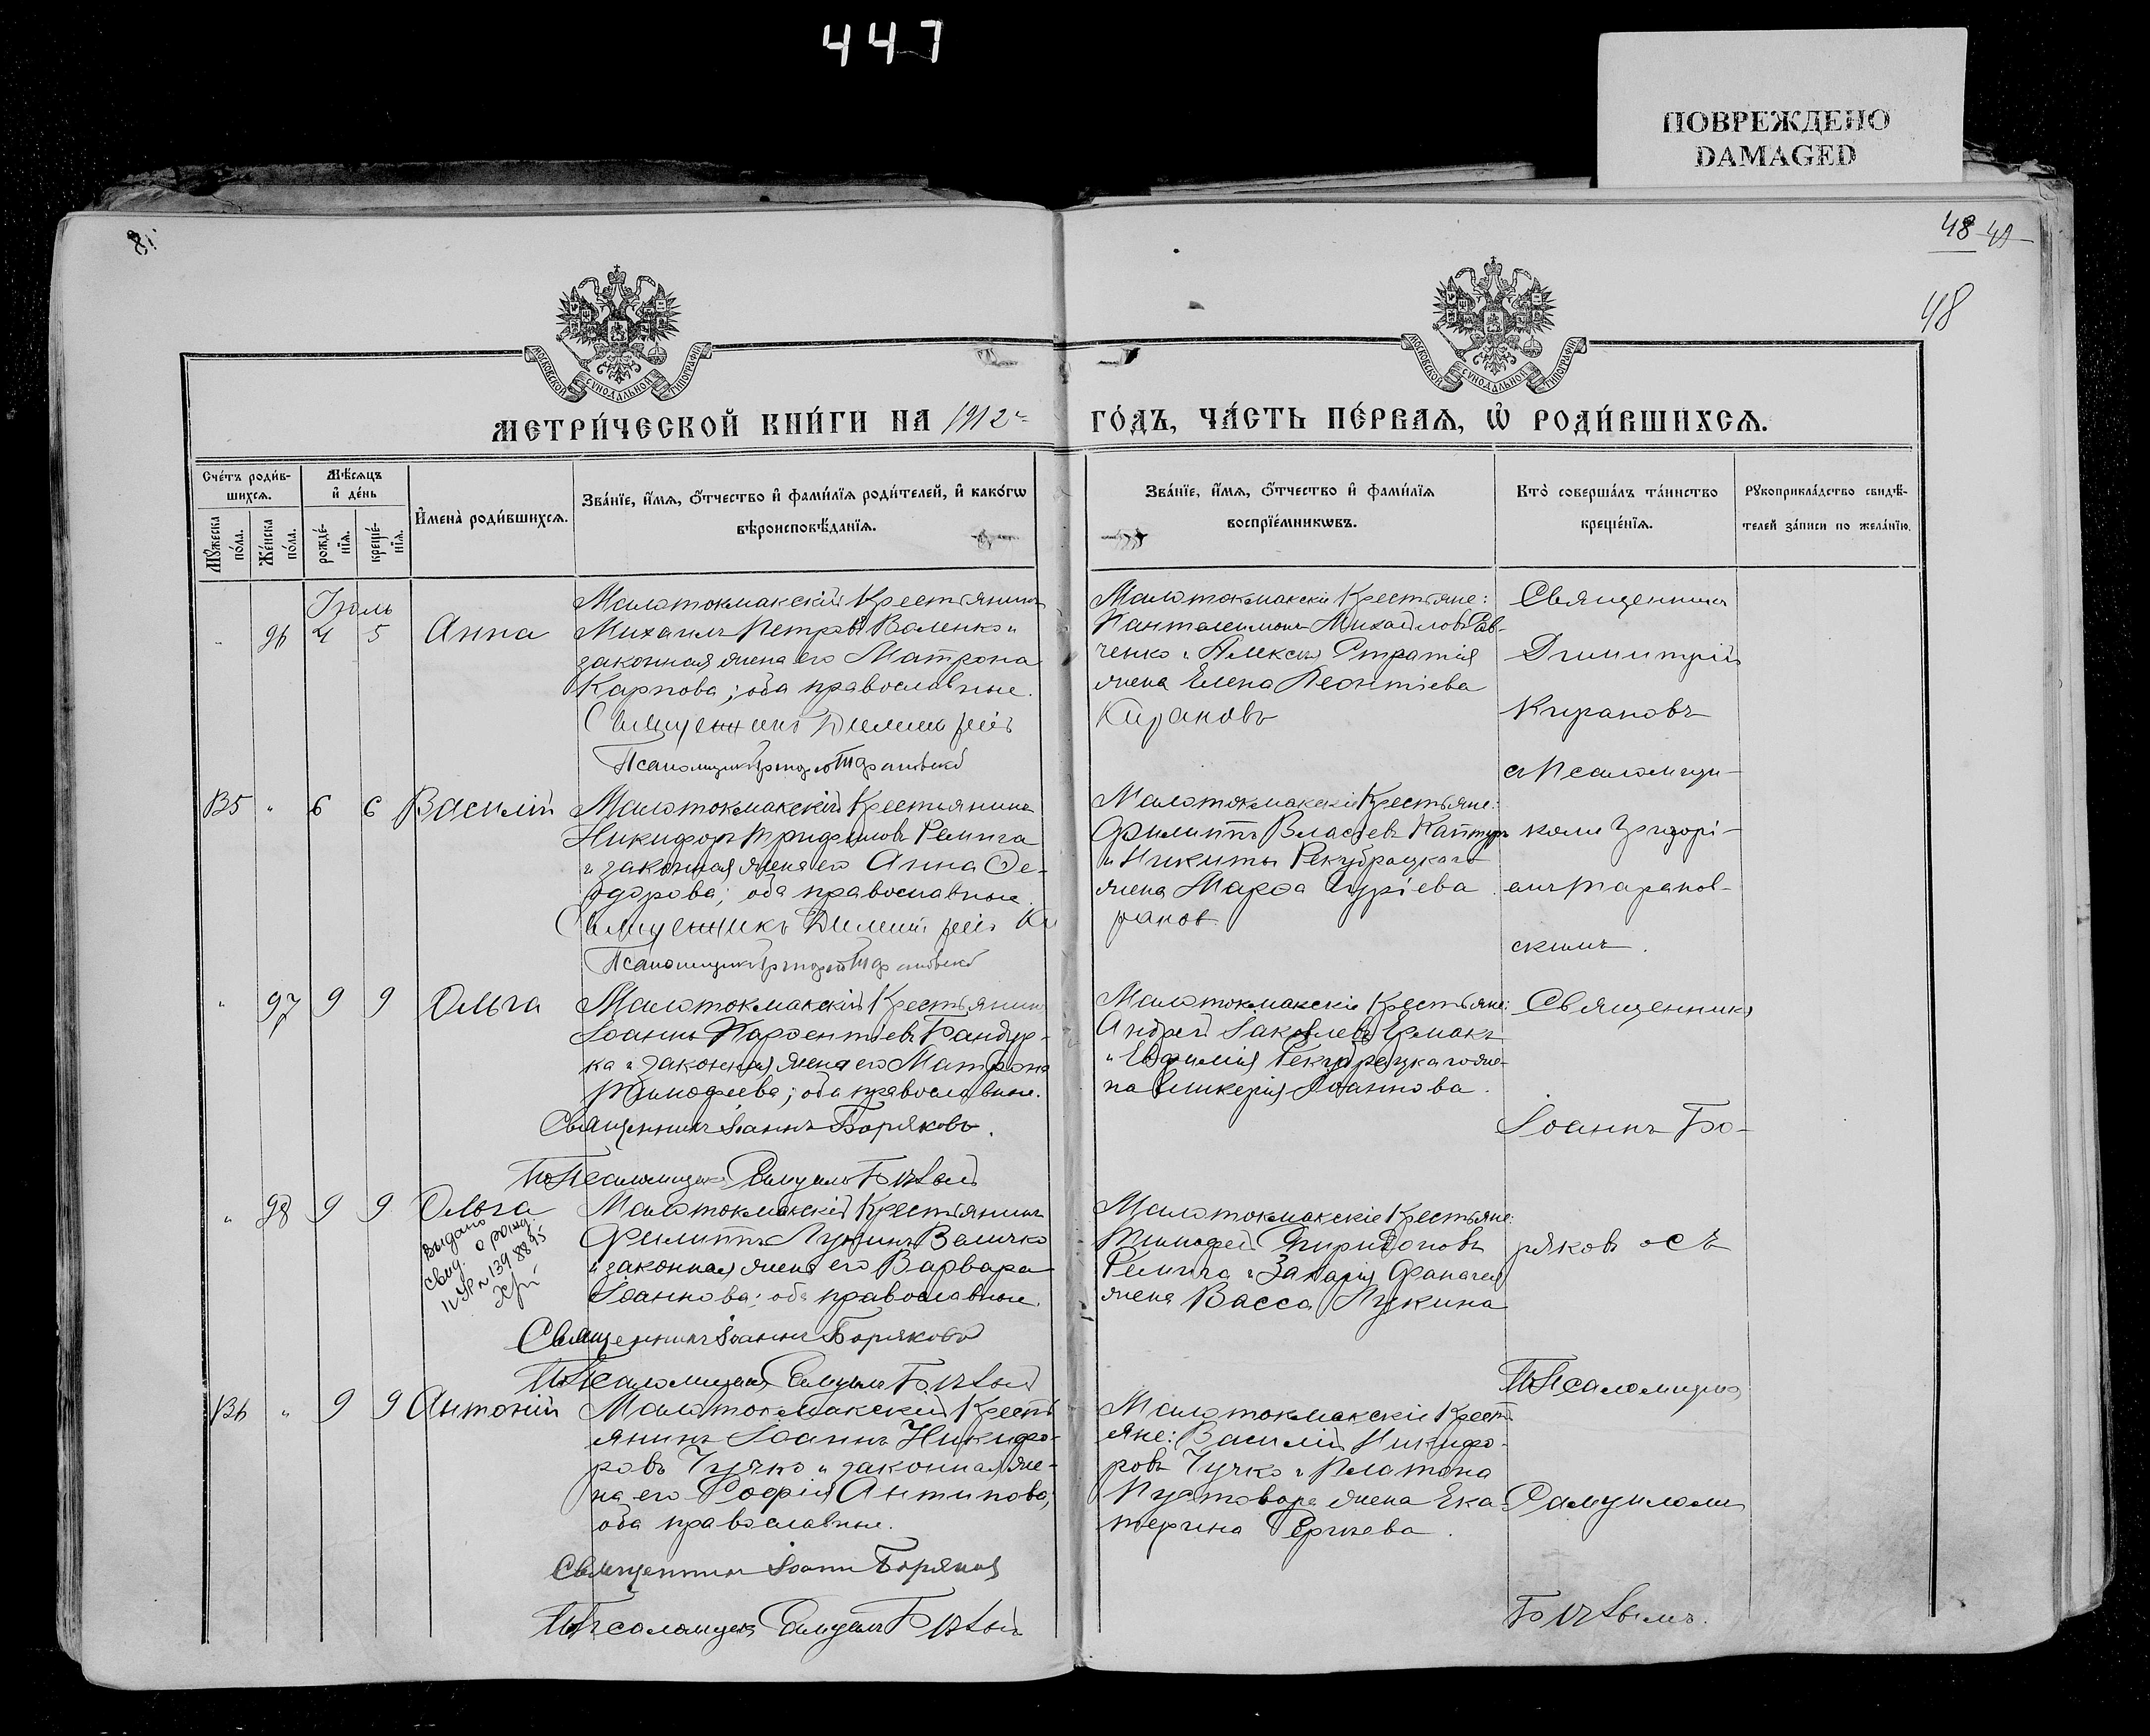 447
ПОВРЕЖДЕНО
DAMAGED
81
48 49
48
МОСКОВСКОЙ СѴНОДАЛЬНОЙ ТИПОГРАФІИ
МОСКОВСКОЙ СѴНОДАЛЬНОЙ ТИПОГРАФІИ
МЕТРИ́ЧЕСКОЙ КНИ́ГИ НА 1912 ГО́ДЪ, ЧА́СТЬ ПЕ́РВАѦ, Ѡ҆ РОДИ́ВШИХСѦ.
Сче́тъ роди́в-
шихсѧ.
Мѣ́сѧцъ
и҆ де́нь
Мꙋ́жеска
по́ла.
Же́нска
по́ла.
рожде́-
нїѧ.
креще́-
нїѧ.
И҆мена̀ роди́вшихсѧ.
Зва́нїе, и҆́мѧ, ѻ҆́тчество и҆ фами́лїѧ роди́телей, и҆ како́гѡ
вѣроисповѣ́данїѧ.
Зва́нїе, и҆́мѧ, ѻ҆́тчество и҆ фами́лїѧ
воспрїе́мникѡвъ.
Кто̀ соверша́лъ та́инство
креще́нїѧ.
Рꙋкоприкла́дство свидѣ́-
телей за́писи по жела́нїю.
Іюль
" 96 4 5 Анна
Малотокмакскій Крестьянинъ
Михаилъ Петровъ Валенко и
законная жена его Матрона
Карпова; оба православные.
Священникъ Димитрій
Псаломщикъ Григорій Тарановскій
Малотокмакскіе Крестьяне:
Пантелеимонъ Михайловъ
ченко и Алексія
жена Елена Леонтіева
Кирановъ
Священникъ
Димитрій
Кирановъ
съ Псаломщи-
85 " 6 6 Василій
Малотокмакскій Крестьянинъ
Никифоръ Трифоновъ Репига
и законная жена его Анна Ѳе-
одорова; оба православные.
Священникъ Димитрій Ки
Псаломщикъ Григорій Тарановскій
Малотокмакскіе Крестьяне:
Филиппъ Власіевъ
и Никиты Рекубрацкаго
жена Марѳа Гуріева
рановъ
комъ Григорі-
емъ Таранов-
скимъ.
" 97 9 9 Ольга
Малотокмакскій Крестьянинъ
Іоаннъ Парѳентіевъ Бандур-
ка и законная жена его Матрона
Тимофеева; оба православные.
Священникъ Іоаннъ Боряковъ.
Псаломщикъ Самуилъ
Малотокмакскіе Крестьяне:
Андрей Іаковлевъ Ермакъ
и Евфимія Рекубрацкаго же-
на Гликерія Іоаннова.
Священникъ
Іоаннъ Бо-
" 98 9 9 Ольга
Выдано
свид. о рожд.
№ 1398895
Малотокмакскій Крестьянинъ
Филиппъ Лукинъ Величко
и законная жена его Варвара
Іоаннова; оба православные.
Священникъ Іоаннъ Боряковъ
Псаломщикъ Самуилъ
Малотокмакскіе Крестьяне:
Тимофей Спиридоновъ
Репига и Захарія
жена Васса Лукина
ряковъ съ
Псаломщик
86 " 9 9 Антоній
Малотокмакскій Кресть
янинъ Іоаннъ Никифо-
ровъ Гучко и законная же-
на его Софія Антипова;
оба православные.
Священникъ Іоаннъ Боряковъ
Псаломщикъ Самуилъ
Малотокмакскіе Кресть
яне: Василій Никифо-
ровъ Гучко и Платона
Пустовара жена Ека-
терина Сергіева.
Самуиломъ